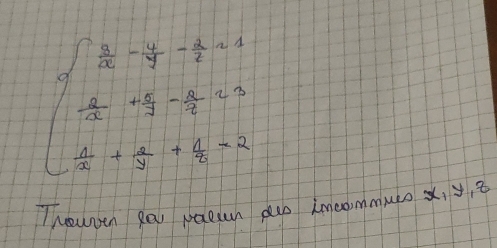 3/x - 4/y - 2/z = 1
2/x + 5/y - 2/z = 3
1/x + 2/y + 1/z = 2
Trouver la valeur des incommues x, y, z